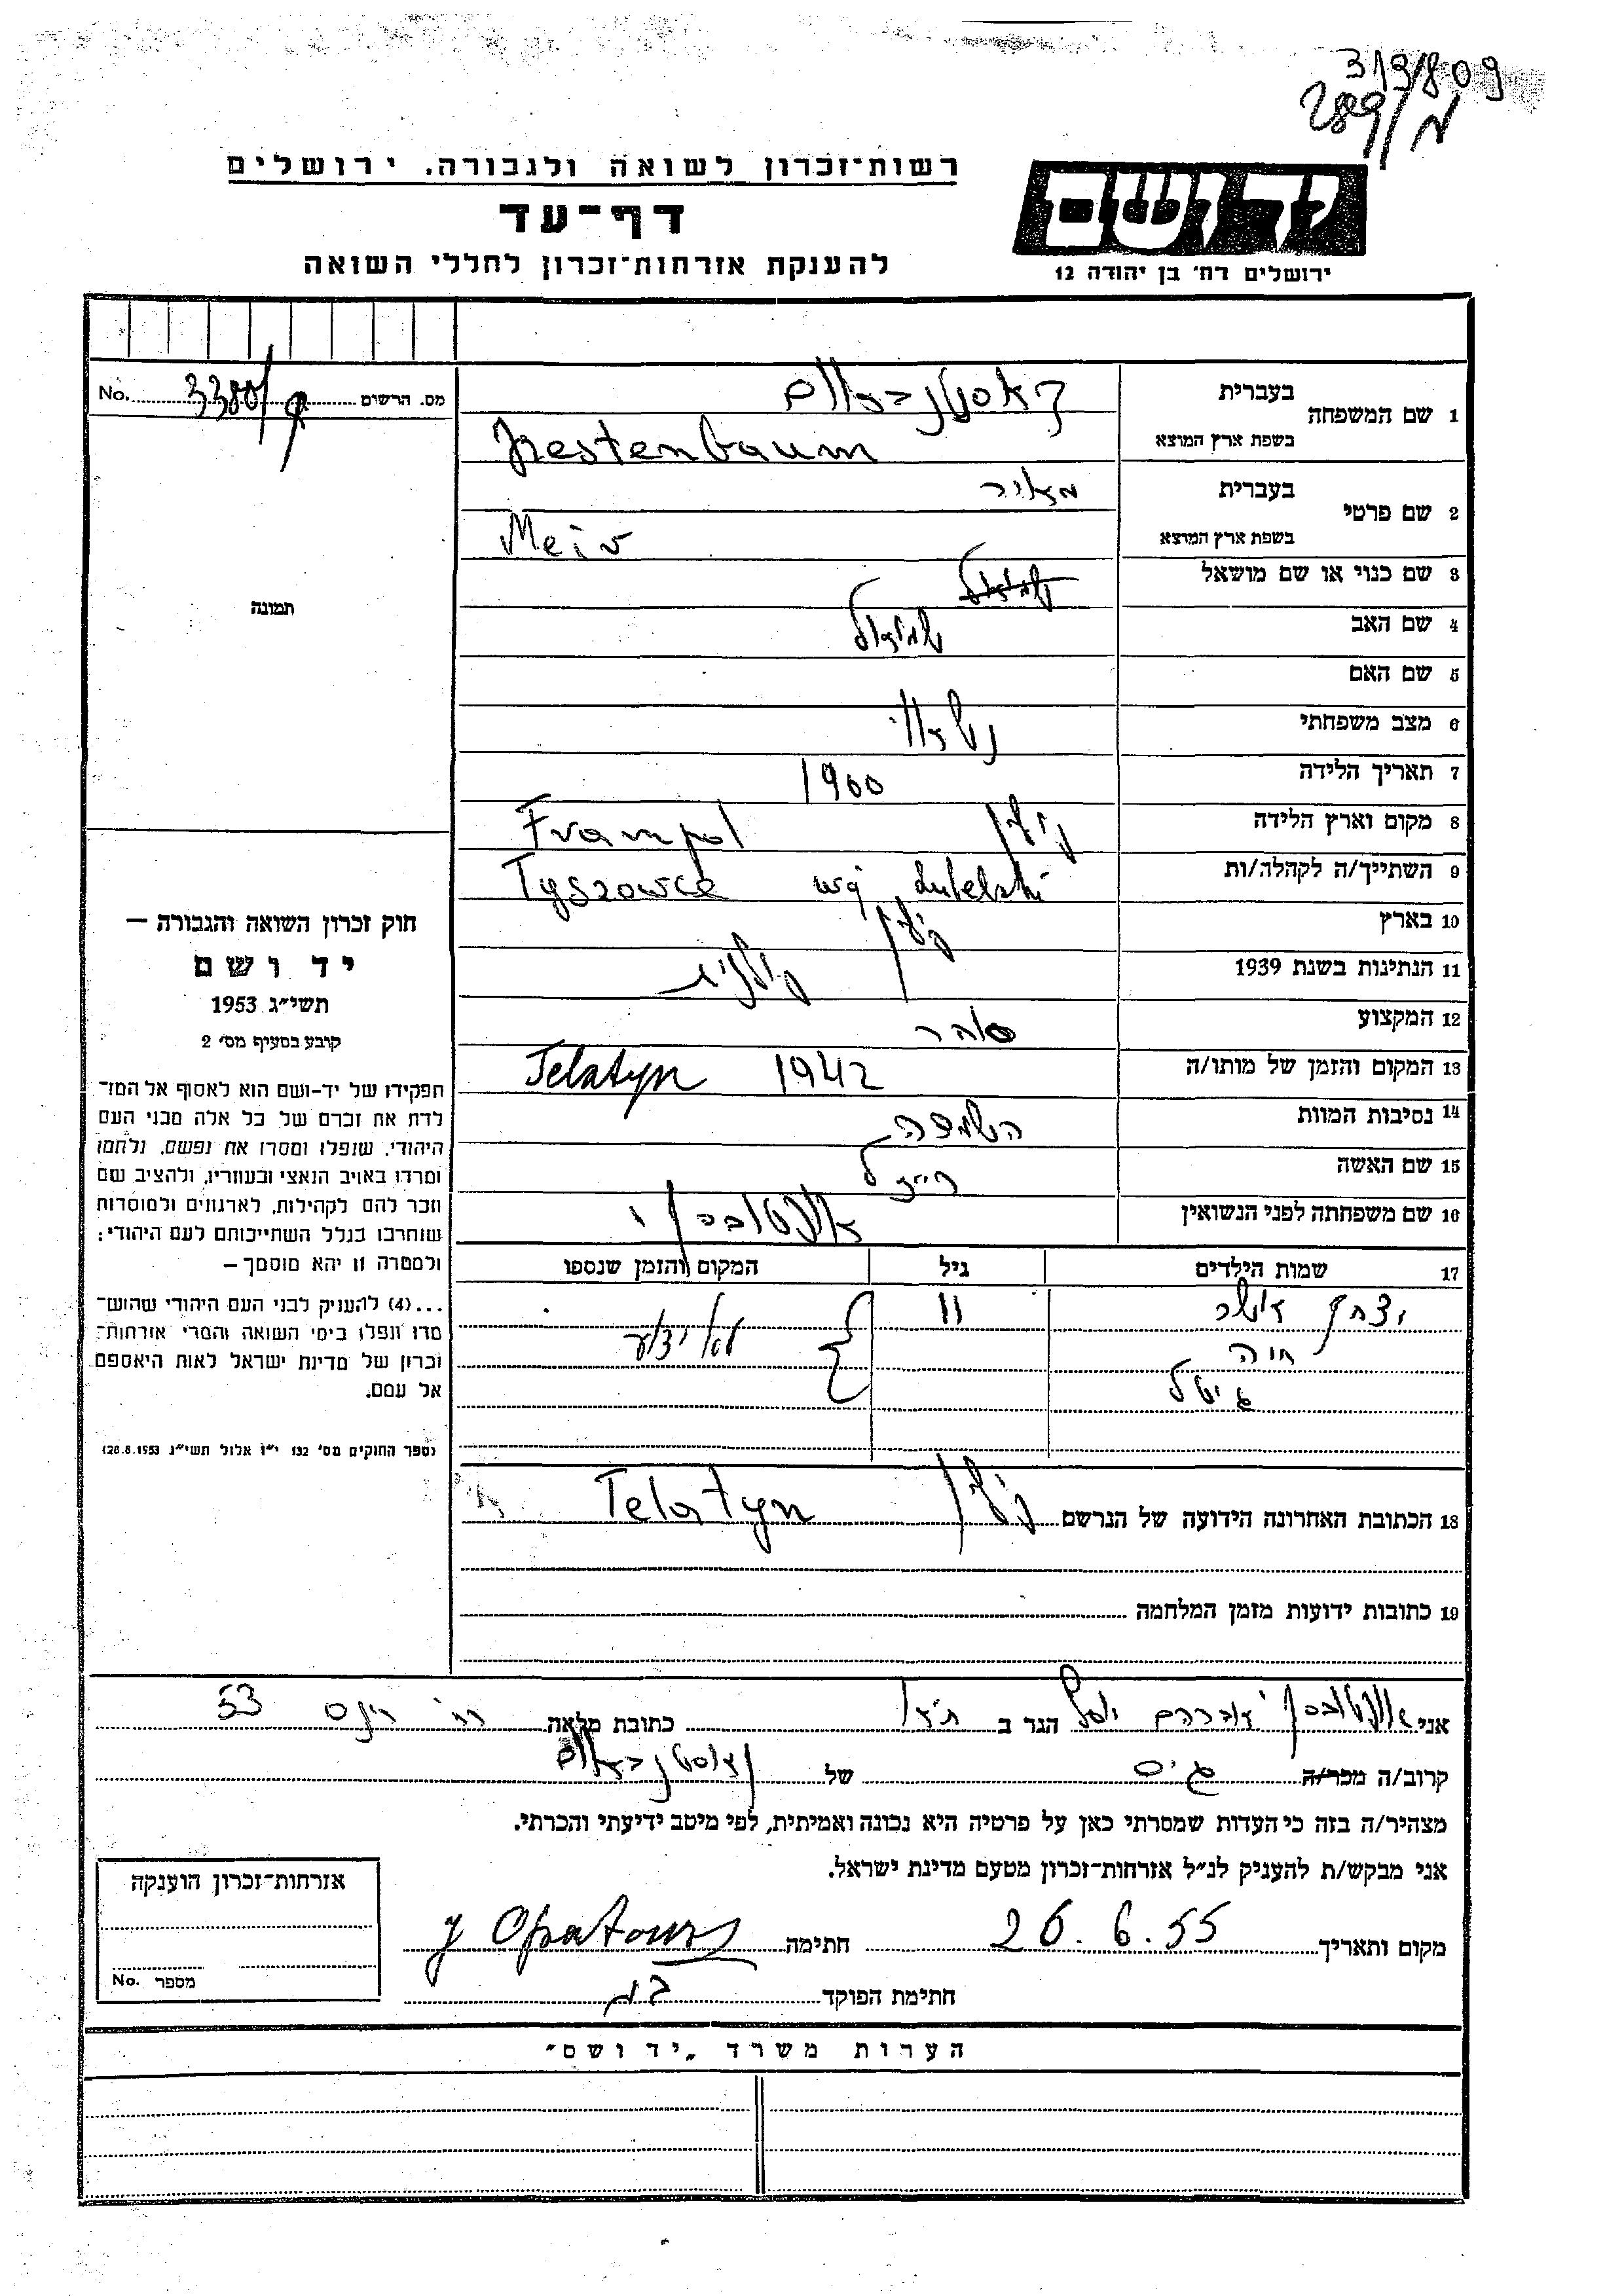 3/3/809
289/מ
רשות־זכרון לשואה ולגבורה. ירושלים
דף־עד
להענקת אזרחות־זכרון לחללי השואה
יד ושם
ירושלים רח׳ בן יהודה 12
מס. הרשום 3380/ק No.
תמונה
חוק זכרון השואה והגבורה —
יד ושם
תשי״ג 1953
קובע בסעיף מס׳ 2
תפקידו של יד-ושם הוא לאסוף אל המו־
לדת את זכרם של כל אלה מבני העם
היהודי, שנפלו ומסרו את נפשם, נלחמו
ומרדו באויב הנאצי ובעוזריו, ולהציב שם
וזכר להם לקהילות, לארגונים ולמוסדות
שנחרבו בגלל השתייכותם לעם היהודי;
ולמטרה זו יהא מוסמך —
...(4) להעניק לבני העם היהודי שהוש־
מדו ונפלו בימי השואה והמרי אזרחות־
זכרון של מדינת ישראל לאות היאספם
אל עמם.
(ספר החוקים מס׳ 132 י״ז אלול תשי״ג 28.8.1953)
1 שם המשפחה בעברית קאסטנבאום
בשפת ארץ המוצא Kestenbaum
2 שם פרטי בעברית מאיר
בשפת ארץ המוצא Meir
3 שם כנוי או שם מושאל שמואל
4 שם האב שמואל
5 שם האם
6 מצב משפחתי נשאוי
7 תאריך הלידה 1900
8 מקום וארץ הלידה פולין Frampol
9 השתייך/ה לקהלה/ות Tyszowce woj Lubelski
10 בארץ פולין
11 הנתינות בשנת 1939 פולנית
12 המקצוע סוחר
13 המקום והזמן של מותו/ה Telatyn 1942
14 נסיבות המוות השמדה
15 שם האשה רייזל
16 שם משפחתה לפני הנשואין
17 שמות הילדים גיל המקום והזמן שנספו
יצחק 11 לא ידוע
חוה
גיטל
18 הכתובת האחרונה הידועה של הנרשם פולין Telatyn
19 כתובות ידועות מזמן המלחמה
אני אברהם יוסף הגר ב ת״א כתובת מלאה רח׳ 53
קרוב/ה מכר/ה גיס של קאסטנבאום
מצהיר/ה בזה כי העדות שמסרתי כאן על פרטיה היא נכונה ואמיתית, לפי מיטב ידיעתי והכרתי.
אני מבקש/ת להעניק לנ״ל אזרחות־זכרון מטעם מדינת ישראל.
מקום ותאריך 26.6.55 חתימה
חתימת הפוקד
אזרחות־זכרון הוענקה
מספר No.
הערות משרד „יד ושם״